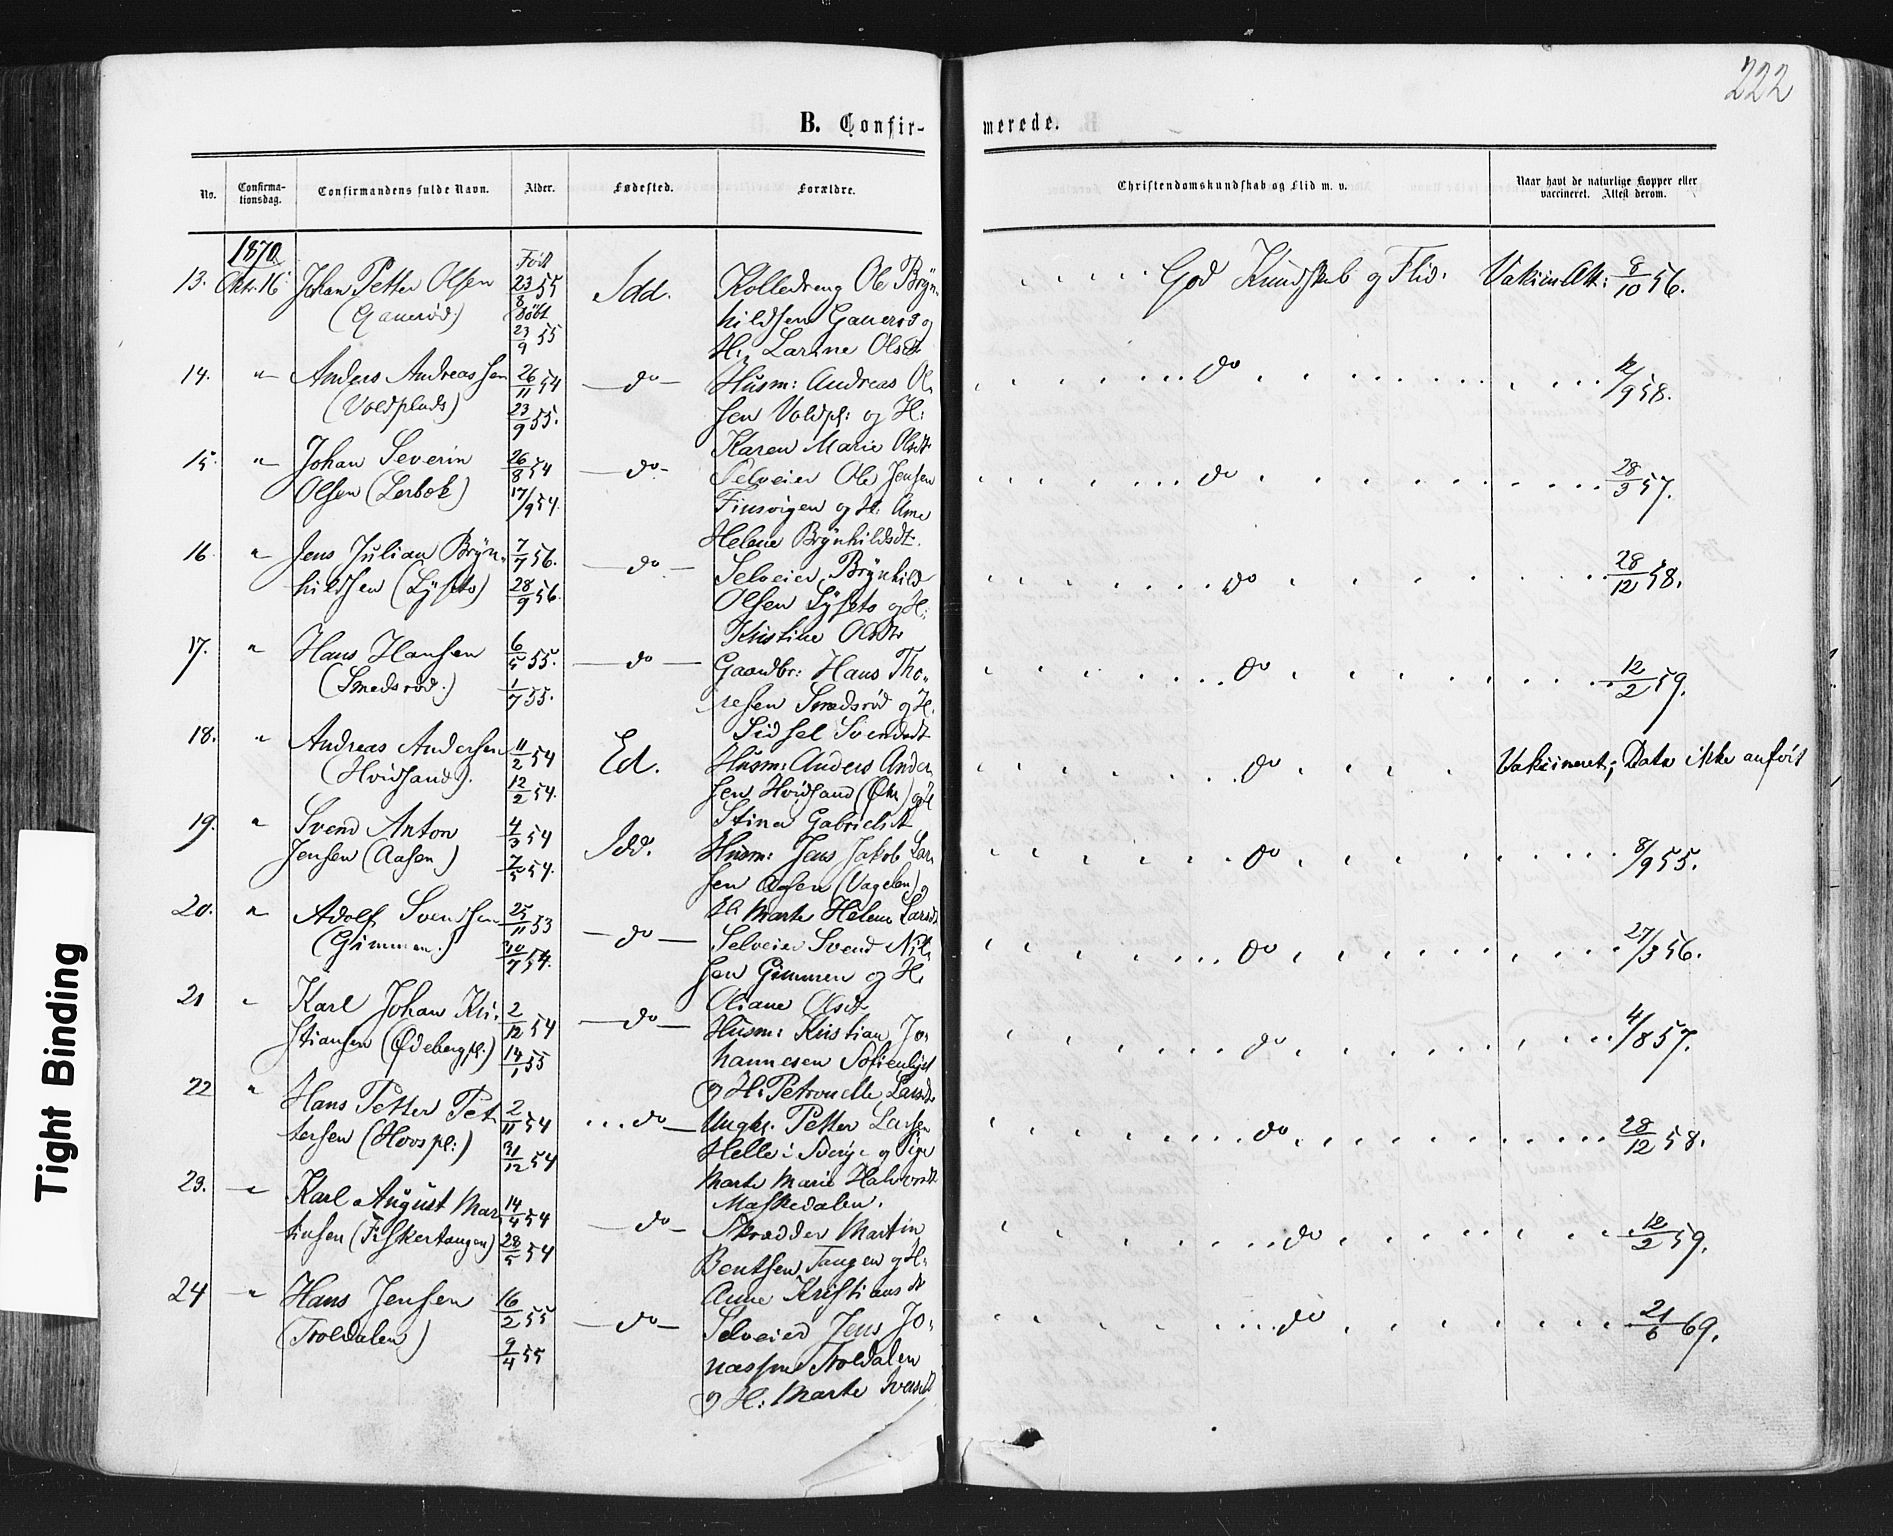 222
B. Confir-
merede.
No.
Confirma-
tionsdag.
Confirmandens fulde Navn.
Alder.
Fødested.
Forældre.
Christendomskundskab og Flid m. v.
Naar havt de naturlige Kopper eller
vaccineret. Attest derom.
1870
13. Oktr. 16 Johan Petter Olsen Født 23/8 55 Idd. Kolledreng Ole Bryn- God Kundskab og Flid. Vakcin Att: 8/10 56.
(Gauerød) Døbt 23/9 55 hildsen Gauerød og
H: Larine Olsdt
14. " Anders Andreassen 26/11 54 — do — Husm: Andreas Ol- do 12/9 58.
(Voldplads) 23/9 55. sen Voldpl: og H:
Karen Marie Olsdt
15. " Johan Severin 26/8 54 — do - Selveier Ole Jensen do 28/9 57.
Olsen (Lerbok) 17/9 54. og H: Ane
Helene Brynhildsdt.
16. " Jens Julian Bryn- 7/7 56. — do — Selveier Brynhild do 28/12 58.
hildsen (Lysets) 28/9 56. Olsen Lysets og H:
Kristine Olsdtr
17. " Hans Hansen 6/5 55. — do — Gaardbr: Hans Tho- do 12/2 59.
(Smedsrød.) 1/7 55. resen Smedsrød og H.
Sidsel Svendsdt
18. " Andreas Andersen 11/2 54 Ed. Husm: Anders Ander- do Vakcineret; Data ikke anført
(Hvidsand). 12/2 54. sen Hvidsand og H
Stina Gabrielsdt
19. " Svend Anton 4/3 54 Idd. Husm: Jens Jakob Lar- do 8/9 55.
Jensen (Aasen) 7/5 54. sen Aasen (Vagelen) og
H. Marte Helene Larsdt
20. " Adolf Svendsen 25/11 53 — do — Selveier Svend Nil- do 27/3 56.
(Gimmen.) 30/7 54. sen Gimmen og H.
Oliane Olsdt
21 " Karl Johan Kri- 2/12 54 — do — Husm: Kristian Jo- do 4/8 57.
stiansen (Ødebergpl.) 14/1 55 hannesen Sofienlyst
og H: Petronelle Larsdt.
22 " Hans Petter Pet- 2/11 54 ... do — Ungk. Petter Larsen do 28/12 58.
tersen (Hovspl:) 31/12 54 Helle i Berg og Pige
Marte Marie Halvorsdt
Maskedalen.
23. " Karl August Mar- 14/4 54 — do — Skrædder Martin do 12/2 59.
tinsen (Fiskertangen) 28/5 54 Bentsen Tangen og H:
Anne Kristiansdt
24 " Hans Jensen 16/2 55 — do — Selveier Jens Jo- do 21/6 69.
(Troldalen) 9/4 55 nassen Troldalen
og H: Marte Iversdt
Tight Binding